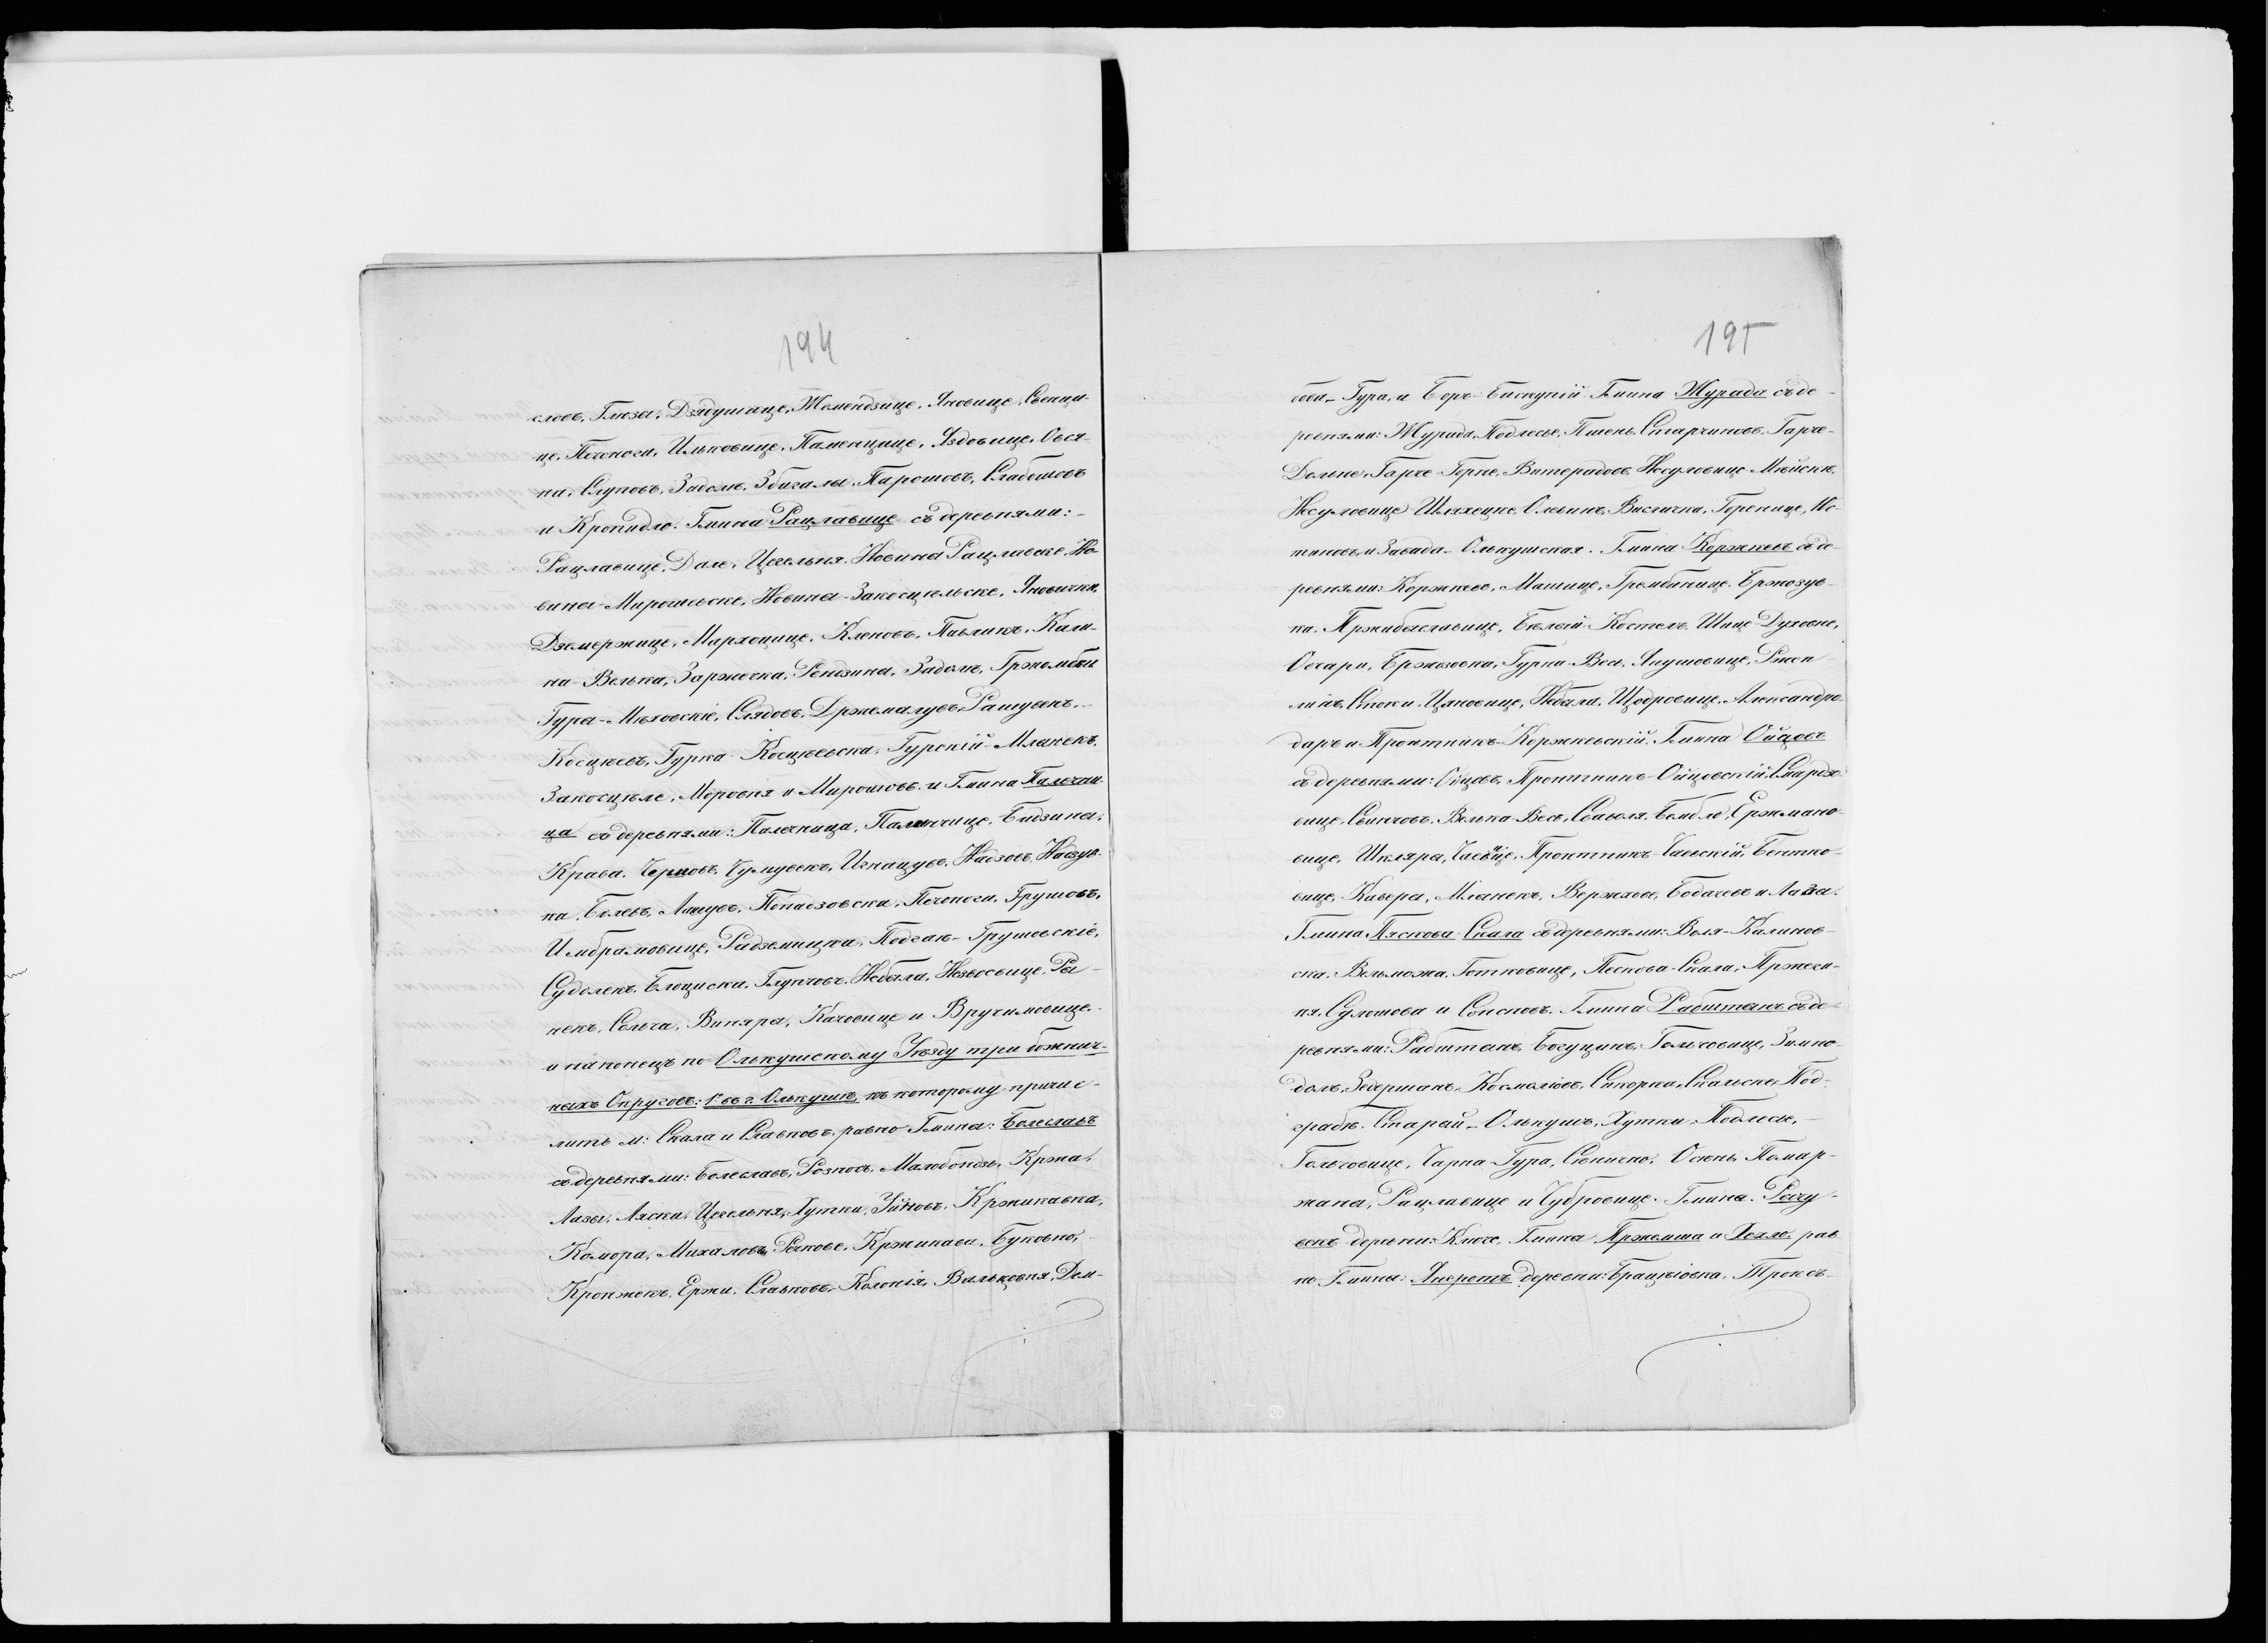 194
словъ, Глюзы, Дзядушице, Жемендзице, Яновице, Свенци-
це, Печоноги, Ильковице, Паменцице, Яздовице, Овся-
на, Слуповъ, Задоле, Збигалы, Парошовъ, Слабошовъ
и Кропидло. Гмина Рацлавице съ деревнями:-
Рацлавице, Дале, Цегельня, Новина Рацлавске, Но-
вина-Мирошовске, Новина-Закосцельске, Яновички,
Дземержице, Мархоцице, Кленовъ, Павликъ, Кали-
на-Велька, Заржечка, Рендзина, Задоле, Гржомбки
Гуры-Мѣховскіе, Слядовъ, Држемалувъ, Рашувекъ,-
Косцѣевъ, Гурка-Косцѣевска, Гурскій-Млынекъ,
Закосцѣле, Моровня и Мирошовъ и Гмина Палечни-
ца съ деревнями: Палечница, Паменчице, Бидзина,
Крава, Черновъ, Чумувекъ, Игнацувъ, Надзовъ, Надзув-
ка, Болевъ, Лашувъ, Попадзовска, Печоноги, Грушовъ,
Имбрамовице, Радземицка, Подгае-Грушовскіе,
Судолекъ, Блоциска, Глупчовъ, Небыла, Нехвосьвице, Ры-
некъ, Сольча, Виняры, Качовице и Вручимовице.
и наконецъ по Олькушскому Уѣзду три божнич-
ныхъ Округовъ: 1й въ г. Олькушѣ, къ которому причис-
лить м: Скала и Славковъ, равно Гмины: Болеславъ
съ деревнями: Болеславъ, Рознось, Малободзь, Кржа,
Лазы, Ляски, Цегельня, Хутки, Уйковъ, Кржикавка,
Комора, Михаловъ, Речкове, Кржикава, Буковно,
Кропжекъ, Ержи, Славковъ, Колонія, Вальковня, Дем-
195
бова-Гура, и Боръ-Бискупій Гмина Журада съ де-
ревнями: Журада, Подлесье, Пшень, Старчиновъ, Гарче-
Дольне, Гарче-Горне, Витерадовъ, Несуловице-Мѣйске,
Несуловице-Шляхецке, Олевинъ, Висличка, Горенице, Ко-
тиновъ и Завада-Олькушская. Гмина Коржкевъ съ де-
ревнями: Коржкевъ, Машице, Грембинице, Бржозув-
ка, Пржибыславице, Бялый-Костелъ, Шице-Духовне,
Овчары, Бржозовка, Гурна-Весь, Янушовице, Ржеп-
линъ, Споки, Цяновице, Небыла, Щодровице, Александро-
даръ и Прондникъ-Коржкевскій. Гмина Ойцовъ
съ деревнями: Ойцовъ, Прондникъ-Ойцовскій, Смардзо-
вице, Свинчовъ, Велька-Весь, Сонсполя, Бембло, Ержмано-
вице, Шкляры, Чаевице, Прондникъ-Чаевскій, Бентко-
вице, Кавера, Млынекъ, Вержхова, Бодачовъ и Лаза.
Гмина Пяскова-Скала съ деревнями: Воля-Калинов-
ска, Вельможа, Готковице, Пескова-Скала, Пржеги-
ня, Сулошова и Сонсновъ. Гмина Рабштынъ съ де-
ревнями: Рабштынъ, Богуцинъ, Гольчовице, Зимно-
долъ, Зедерманъ, Космоловъ, Сикорка, Скальске, Под-
грабе, Старый-Олькушъ, Хутки, Подлесье,-
Гольчовице, Чарна-Гура, Сѣнично, Осѣкъ, Помар-
жана, Рацлавице и Чубровице. Гмина Рогу-
векъ деревни: Ключе, Гмина Пржемша и Хехло, рав
но Гмины: Янгротъ деревни: Брацѣювка, Трокс-